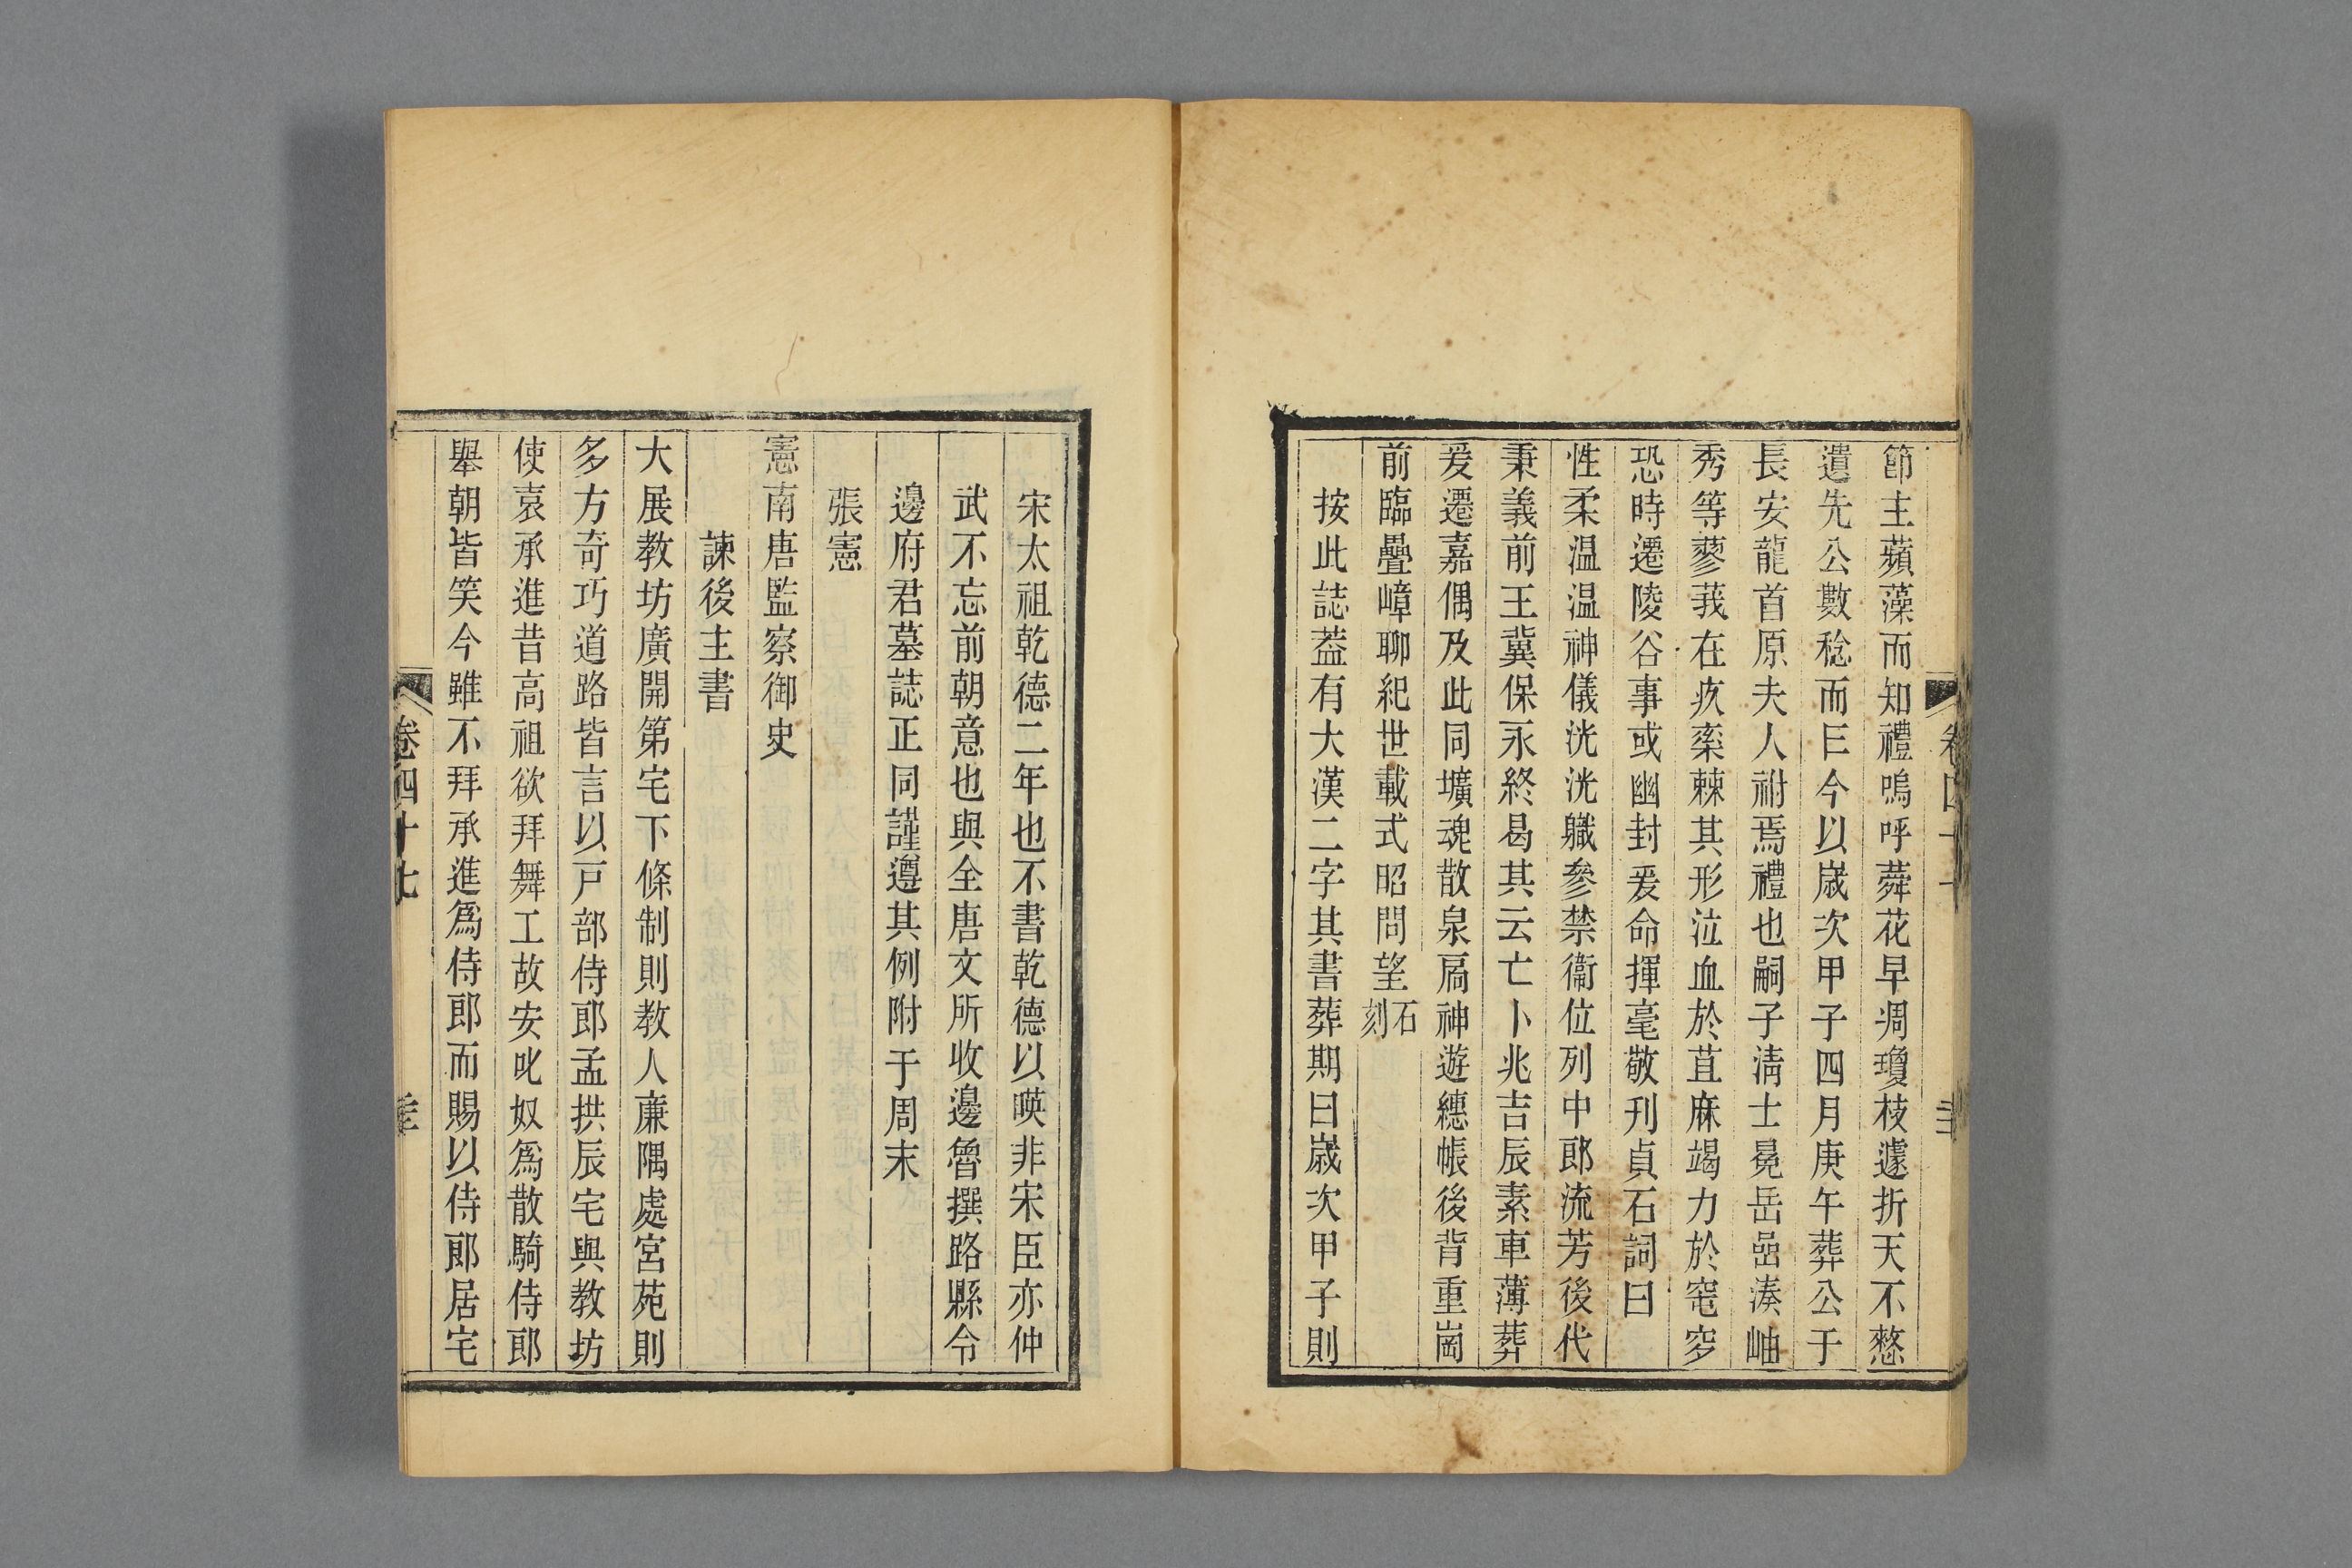 節主蘋藻而知禮嗚呼蕣花早凋瓊枝遽折天不憖
遺先公數稔而巳今以嵗次甲子四月庚午葬公于
長安龍首原夫人祔焉禮也嗣子清士晃岳嵒湊岫
秀等蓼莪在疚欒棘其形泣血於苴麻竭力於窀穸
恐時遷陵谷事或幽封爰命揮毫敬刋貞石詞曰
性柔温温神儀洸洸職參禁衞位列中郎流芳後代
秉義前王冀保永終曷其云亡卜兆吉辰素車薄葬
爰遷嘉偶及此同壙魂散泉扃神遊繐帳後背重崗
前臨疊嶂聊紀世載式昭問望石刻
按此誌葢有大漢二字其書葬期曰嵗次甲子則
宋太祖乾德二年也不書乾德以暎非宋臣亦仲
武不忘前朝意也與全唐文所收邊魯撰路縣令
邊府君墓誌正同謹遵其例附于周末
張憲
憲南唐監察御史
諫後主書
大展教坊廣開第宅下條制則教人亷隅處宮苑則
多方奇巧道路皆言以戸部侍郎孟拱辰宅與教坊
使袁承進昔高祖欲拜舞工故安叱奴爲散騎侍郎
舉朝皆笑今雖不拜承進爲侍郎而賜以侍郎居宅
卷四十七